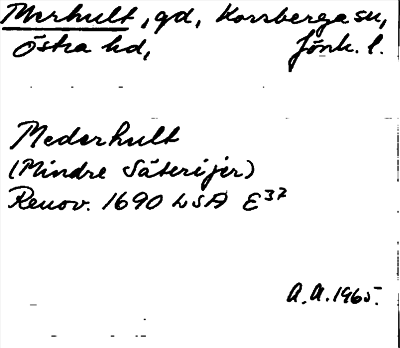 Merhult, gd, Korsberga sn,
Östra hd, Jönk. l.
Mederhult
(Mindre Säterijer)
Renov. 1690 LSA E37
A.A. 1965.